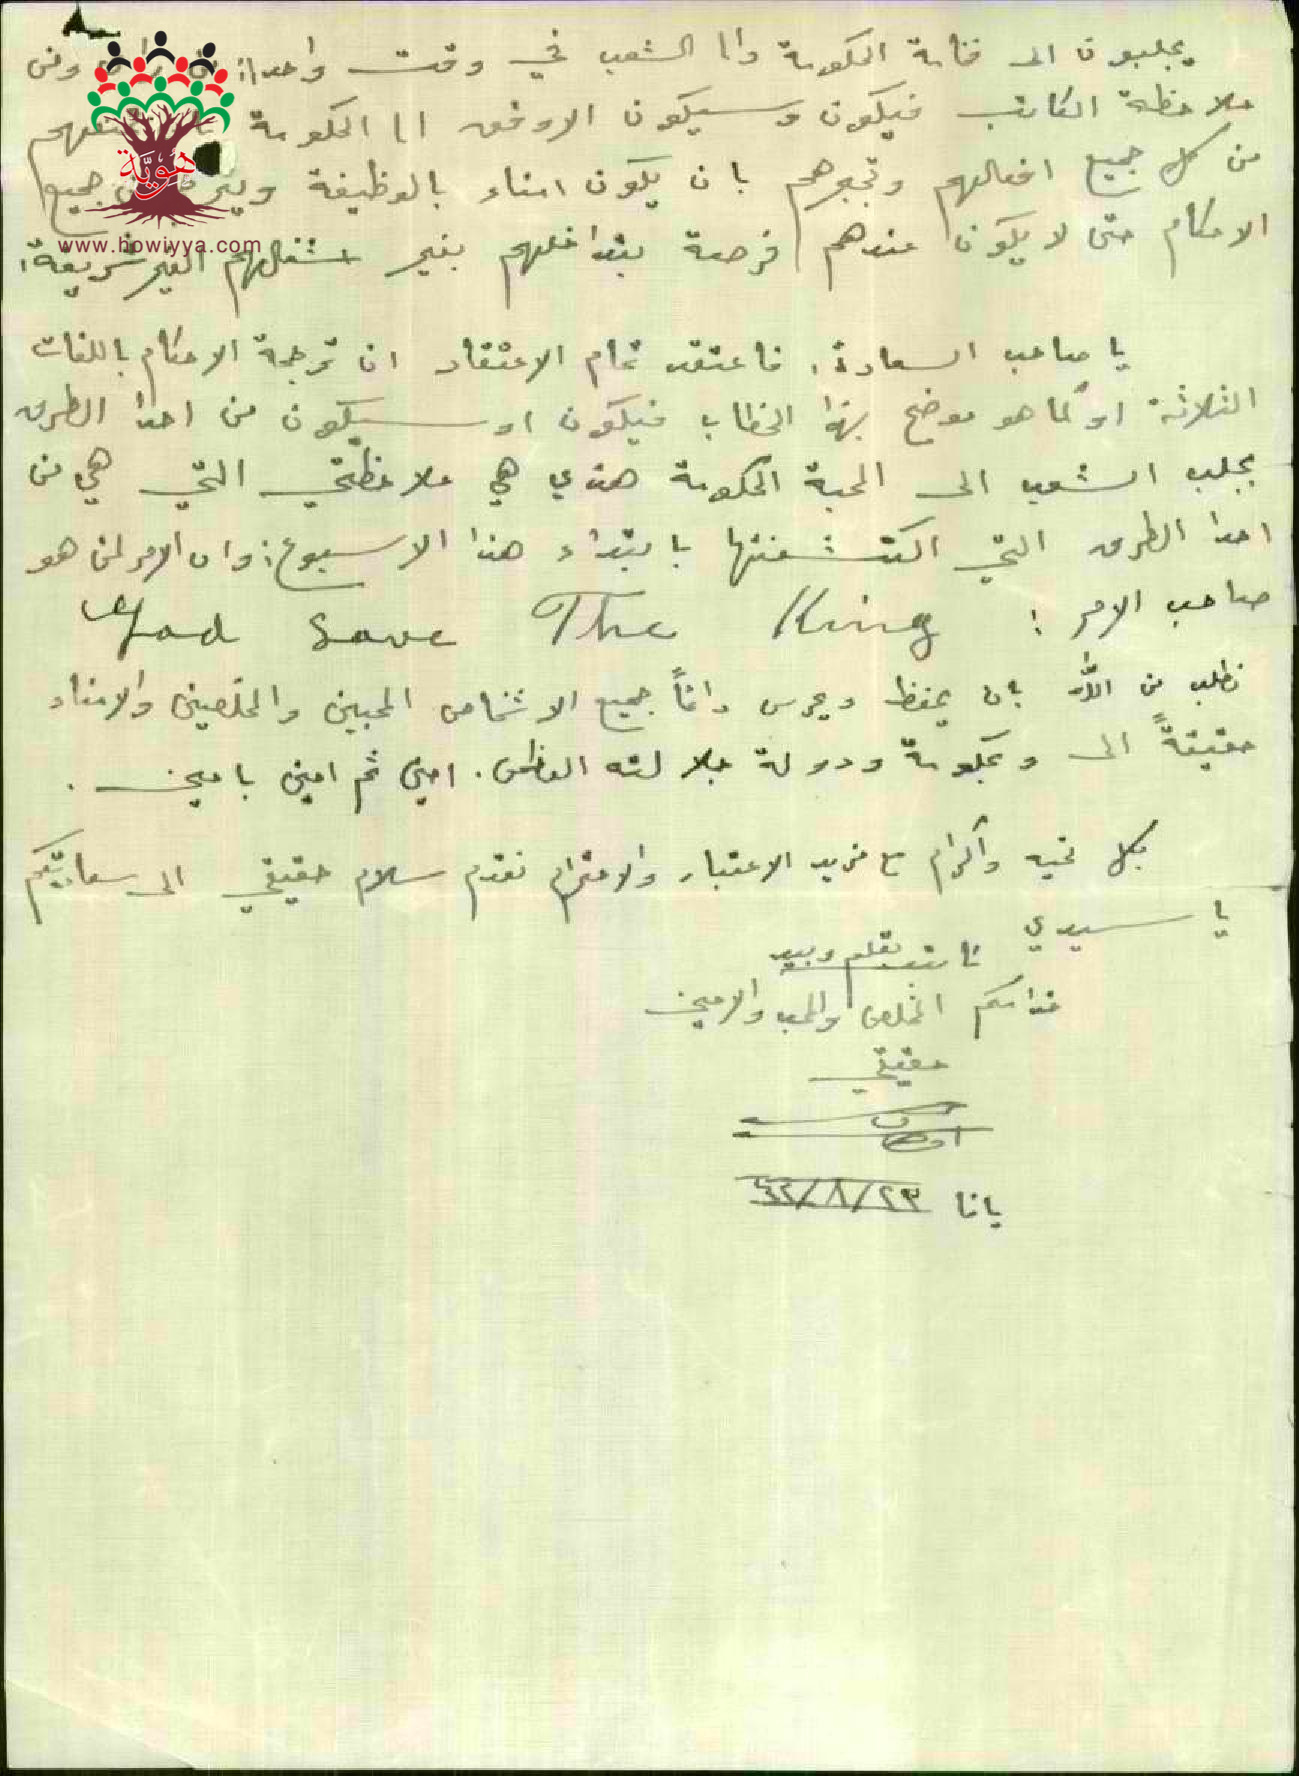 يجلبون الى فنامة الحكومة والى الشعب في وقت واحد: ومن
ملاحظة الكاتب فيكون وسيكون الاوفق الى الحكومة
من كل جميع افعالهم وتجبرهم بان يكون امناء بالوظيفة جميع
الاحكام حتى لا يكون عندهم فرصة بتداخلهم بغير اشغالهم الغير شريفة:
هويّة
www.howiyya.com
يا صاحب السعادة، فاعتقد تمام الاعتقاد ان ترجمة الاحكام باللغات
الثلاثة او كما هو موضح بهذا الخطاب فيكون او سيكون من احدا الطرق
بجلب الشعب الى المحبة الحكومة هذي هي ملاحظتي التي هي من
احدا الطرق التي اكتشفتها بابتداء هذا الاسبوع: وان الامر لمن هو
صاحب الامر :
God Save The King
نطلب من الله بان يحفظ ويحرس دائماً جميع الاشخاص المحبين والمخلصين والامناء
حقيقةً الى وبحكومة ودولة جلالته العظمى. امين ثم امين يا معين .
بكل تحيه واكرام مزيد الاعتبار والاحترام نقدم سلام حقيقي الى سعادتكم
يا سيدي
كاتب بقلم وبيد
خدامكم المخلص والمحب والامين
حقيقي
يافا ٢٣/٨/٤٢